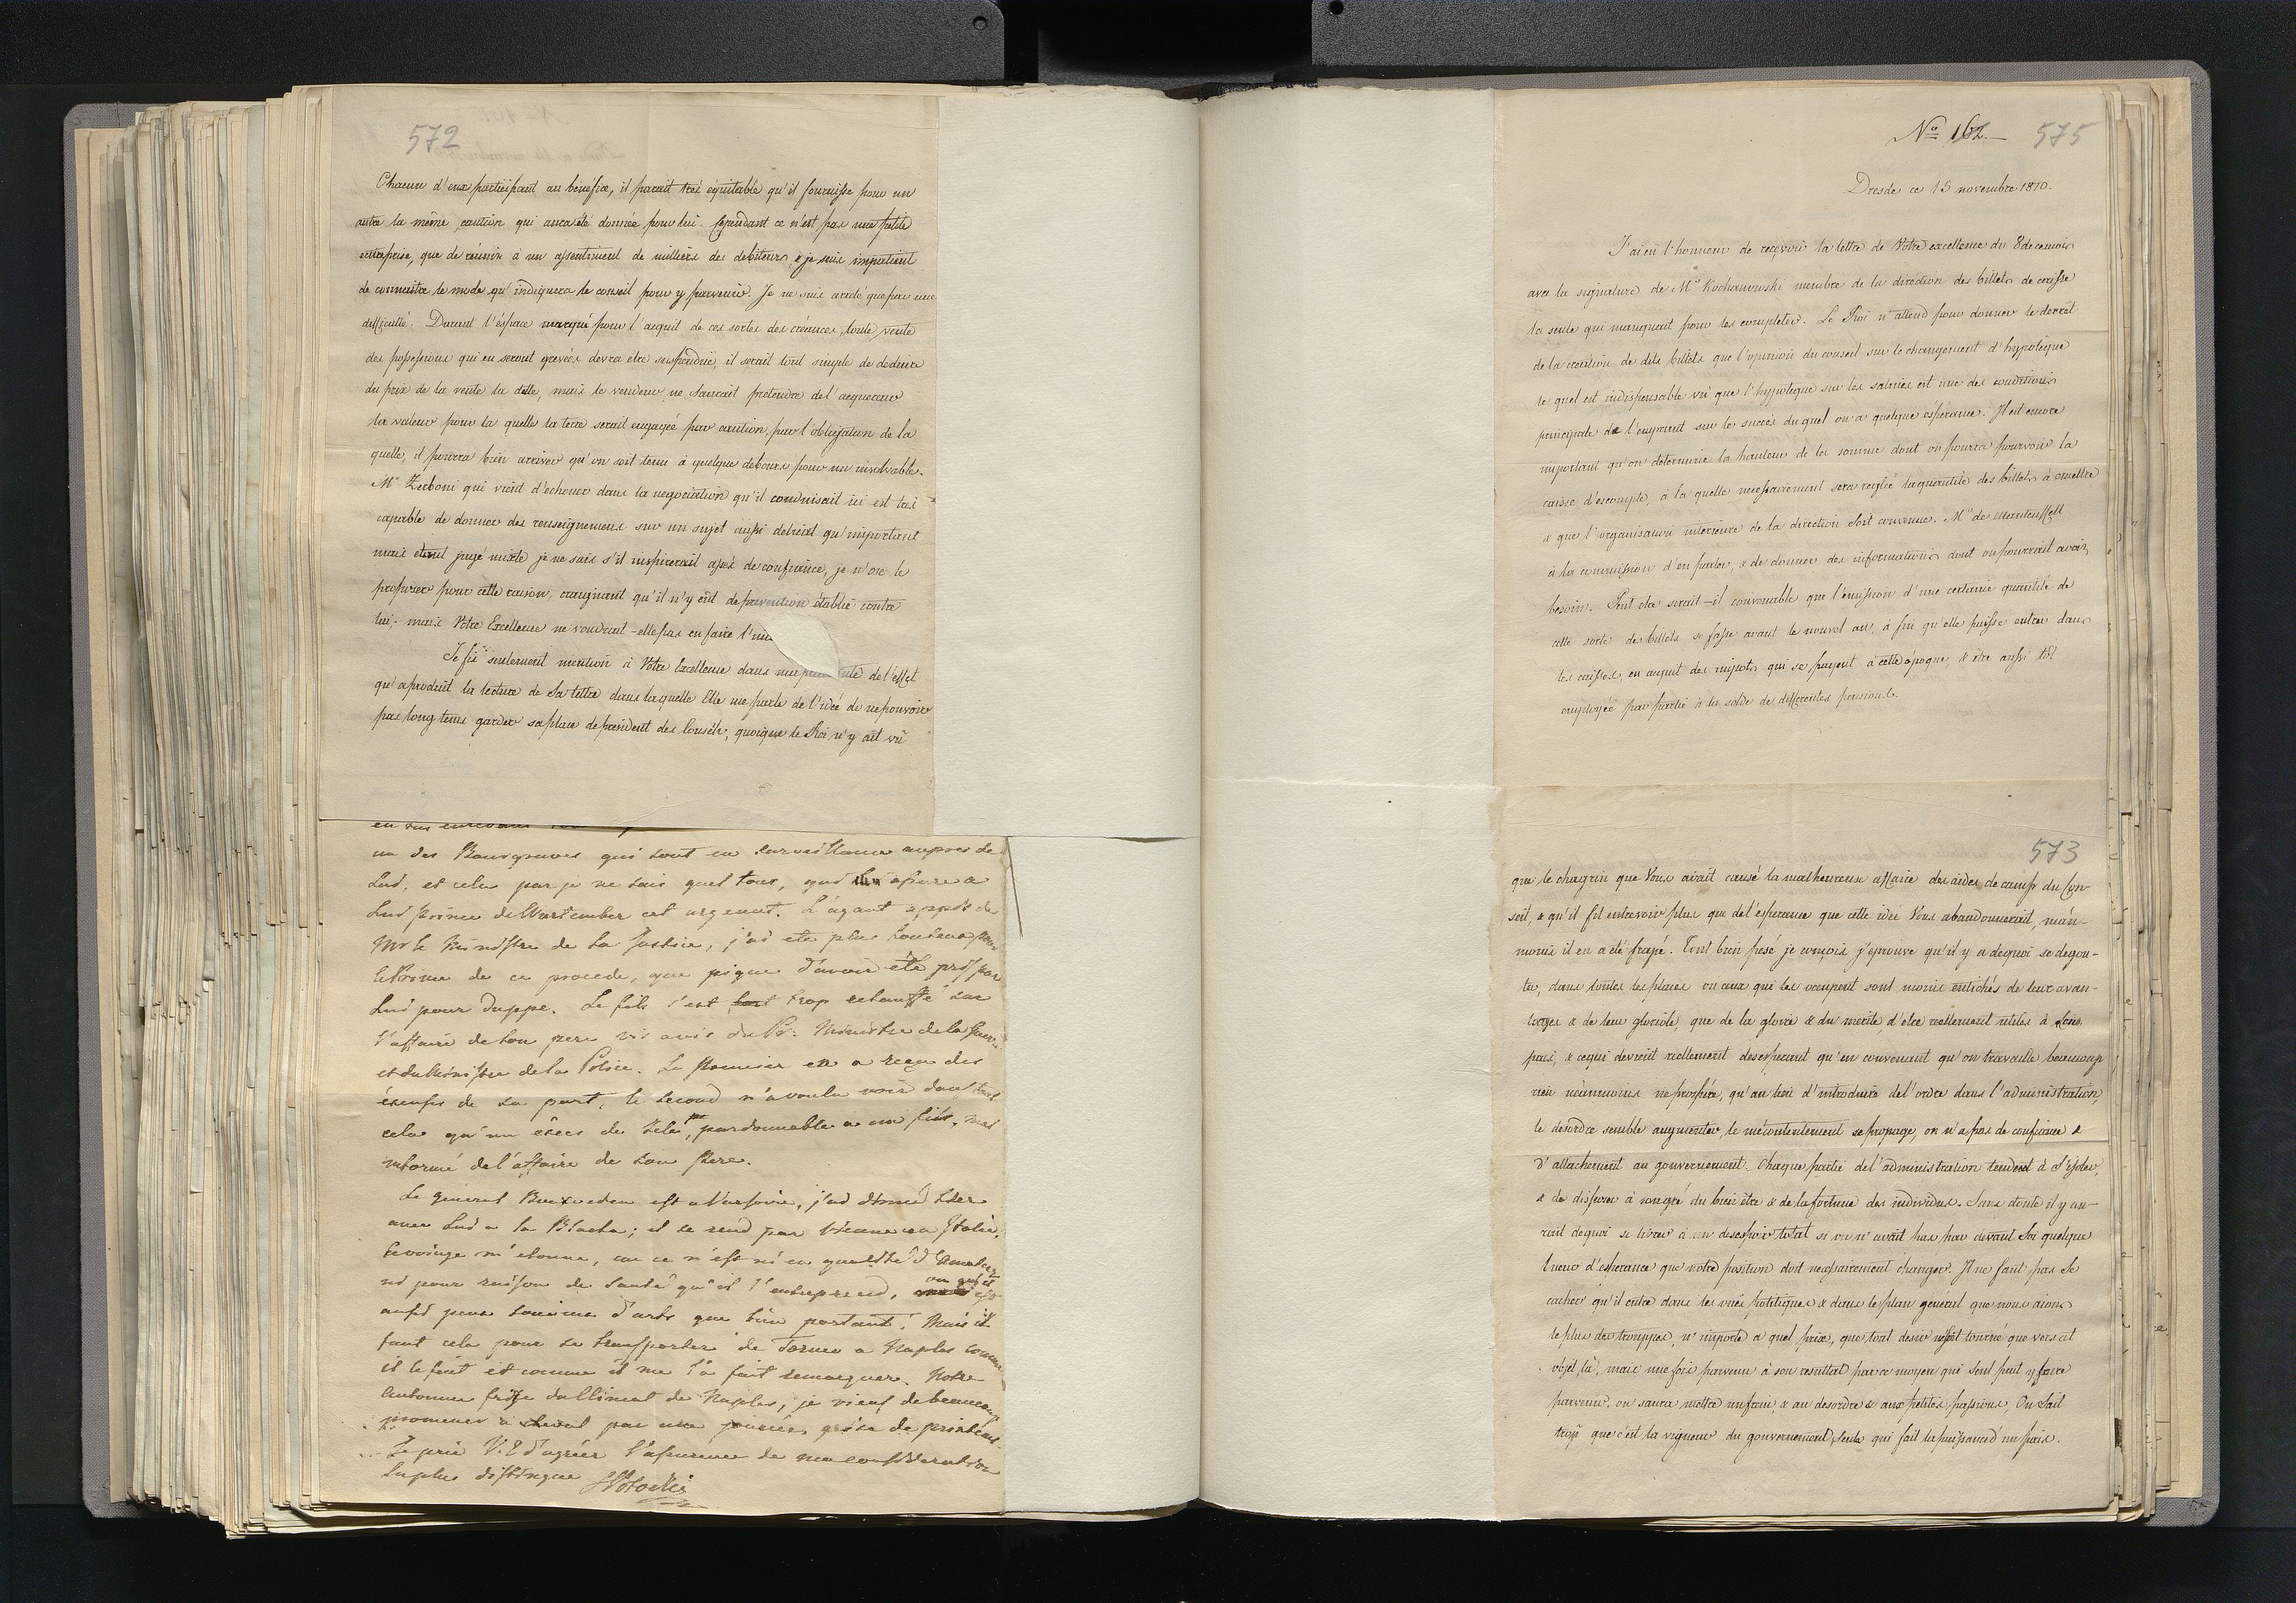 572
Chacun d'eux participant au bénéfice, il parait très équitable qu'il fournisse pour un
autre la même caution qui aura été donnée pour lui. Cependant ce n'est pas une petite
entreprise, que de réunir à un assentiment de milliers des debiteurs & je suis impatient
de connaitre le mode qu'indiquera le conseil pour y parvenir. Je ne suis arreté que par une
difficulté. Durant l'éspace marqué pour l'acquit de ces sortes des créances, toute vente
des possessions qui en seront grevées devra être suspendue, il serait tout simple de deduire
du prix de la vente la dette, mais le vendeur ne saurait pretendre de l'acquereur
la valeur pour la quelle la terre serait engagée par caution, par l'obligation de la
quelle, il pourra bien arriver qu'on soit tenu à quelque debours pour un insolvable.
Mr Zerboni qui vient d'echouer dans la negociation qu'il conduisait ici est très
capable de donner des renseignemens sur un sujet aussi delicat qu'important
mais etant jugé mixte je ne sais s'il inspirerait assés de confiance, je n'ose le
proposer pour cette raison, craignant qu'il n'y eût de prevention établie contre
lui. mais Votre Excellence ne voudrait-elle pas en faire l'
Je fis seulement mention à Votre Excellence dans ma de l'effet
qu'a produit la lecture de Sa lettre dans laquelle Elle me parle de l'idée de ne pouvoir
pas long tems garder sa place de president des Conseils, quoique le Roi n'y ait vû
un des Bourgraves qui sont en surveillance aupres de
Lui, et cela par je ne sais quel tour, qui assure a
Lui prince de Wurtemberg cet argent. L'ayant appris de
Mr le Ministre de la Justice, j'ai eté plus honteux pour
le Prince de ce procedé, que piqué d'avoir été pris par
Lui pour duppe. Le fils s'est trop echauffé sur
l'affaire de son pere vis avis du Pr: Ministre de la Guerre
et du Ministre de la Police. Le premier en a reçu des
éxcuses de sa part, le second n'a voulu voir dans tout
cela qu'un éxces de zele, pardonnable a un fils, mal
informé de l'affaire de son Pere.
Le general Buxoeden est a Varsovie, j'ai diné hier
avec Lui a la Blacha; il se rend par Vienne en Italie,
Ce voiage m'etonne, car ce n'est ni en qualité d'amateur
ni pour raison de santé qu'il l'entreprend, vu qu'il est
aussi peu d'arts que bien portant. Mais il
faut cela pour se transporter de Torneo a Naples comme
il le fait et comme il me l'a fait remarquer. Notre
Automne frise du Climat de Naples, je viens de beaucoup
promener à cheval par une journée grise de printems.
Je prie V. E d'agréer l'assurance de ma consideration
la plus distinguée SPotocki
No 162. 575
Dresde ce 15 novembre 1810.
J'ai eû l'honneur de reçevoir la lettre de Votre excellence du 8 de ce mois
avec la signature de Mr Kochanowski membre de la direction des billets de caisse
la seule qui manquait pour les completer. Le Roi n'attend pour donner le decret
de la creation de dits billets que l'opinion du conseil sur le changement d'hypoteque
le quel est indispensable vû que l'hypoteque sur les salines est une des conditions
principale de l'emprunt sur le succès du quel on a quelque éspérance. Il est encore
important qu'on determine la hauteur de la somme dont on pourra pourvoir la
caisse d'escompte, à la quelle necessairement sera reglée la quantité des billets à émettre
& que l'organisation interieure de la direction soit convenue. Mr de Manteuffell
à la commission d'en parler, & de donner des informations dont on pourrait avoir
besoin. Peut etre serait-il convenable que l'emission d'une certaine quantité de
cette sorte de billets se fasse avant le nouvel an, à fin qu'elle puisse entrer dans
les caisses, en acquit des impots qui se payent à cette époque, & être aussi tôt
employée par partie à la solde de differentes pensions.
573
que le chagrin que Vous avait causé la malheureuse affaire des aides de camp du Con-
seil, & qu'il fit entrevoir plus que de l'esperance que cette idée Vous abandonnerait, néan-
moins il en a été frapé. Tout bien pesé je conçois j'eprouve qu'il y a de quoi se degou-
ter, dans toutes les places où ceux qui les occupent sont moins entichés de leur avan-
tages & de leur gloriole, que de la gloire & du merite d'etre reellement utiles à leur
païs, & ce qui devrait réellement desesperant qu'en convenant qu'on travaille beaucoup
rien néanmoins ne prospère, qu'au lieu d'introduire de l'ordre dans l'administration,
le desordre semble augmenter, le mécontentement se propage, on n'a pas de confiance &
d'attachement au gouvernement. Chaque partie de l'administration tendent à s'isoler,
& de disposer à son gré du bien être & de la fortune des individus. Sans doute il y au-
rait de quoi se livrer à un desespoir total si on n'avait pas par devant Soi quelque
lueur d'esperance que notre position doit necessairement changer. Il ne faut pas Se
cacher qu'il entre dans les vuës politiques & dans le plan général que nous aions
le plus des trouppes, n'importe a quel prix, que tout desir n'est tourné que vers cet
objet, là, mais une fois parvenu à son resultat par ce moyen qui seul peut y faire
parvenir, on saura mettre un frein, & au desordre & aux petites passions, On sait
trop que c'est la vigueur du gouvernement seule qui fait la puissance d'un païs.